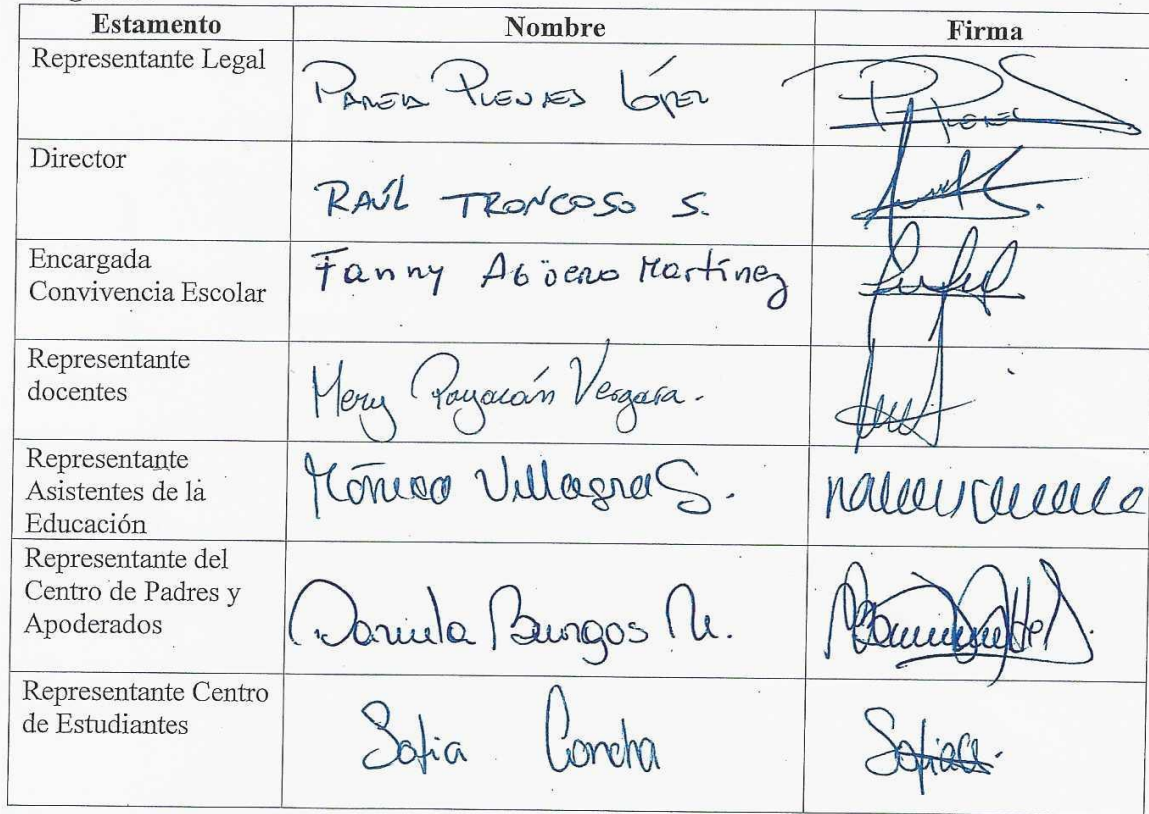 Estamento Nombre Firma
Representante Legal
López
Director
RAÚL TRONCOSO S.
Encargada
Convivencia Escolar
Fanny Agüero Martínez
Representante
docentes
Mery Payacán Vergara.
Representante
Asistentes de la
Educación
Mónica Villagra S.
Representante del
Centro de Padres y
Apoderados
Daniela Burgos M.
Representante Centro
de Estudiantes
Sofia Concha